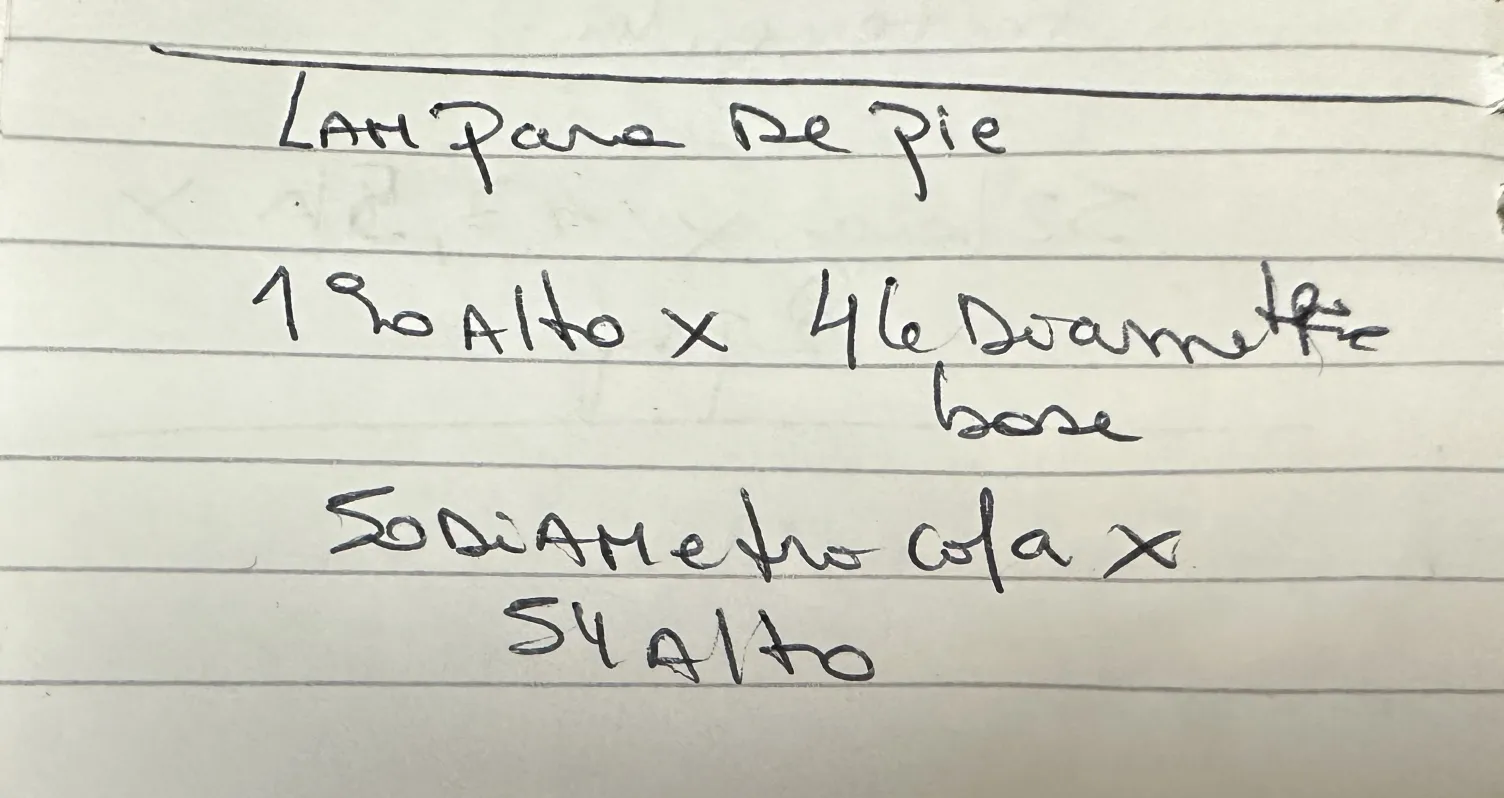 LAMpara De pie
190 Alto x 46 Diametro
base
50 DiAMetro copa x
54 Alto